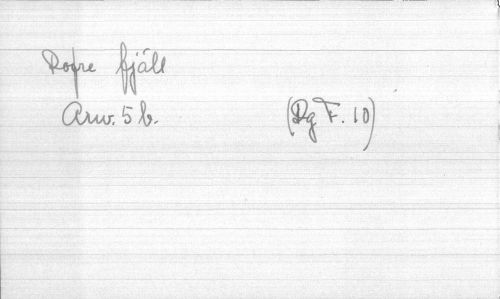 Dofre fjäll
Arw. 5 b. (Dg F. 10)